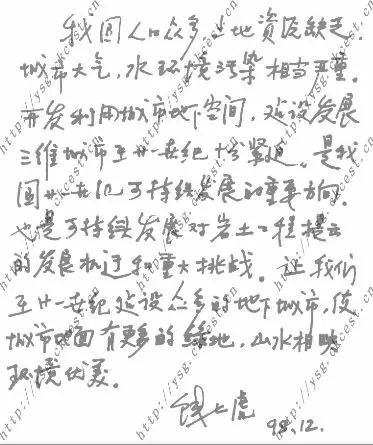 我国人口众多，土地资源缺乏.
城市大气，水环境污染相当严重。
开发利用城市地下空间，建设发展
三维城市至廿一世纪十分紧迫。是我
国廿一世纪可持续发展的重要方向.
也是可持续发展对岩土工程提出
的发展机遇和重大挑战。让我们
至廿一世纪建设众多的地下城市，使
城市地面有更多的绿地，山水相映
环境优美。
钱七虎
98.12.
http://ysg.ckcest.cn